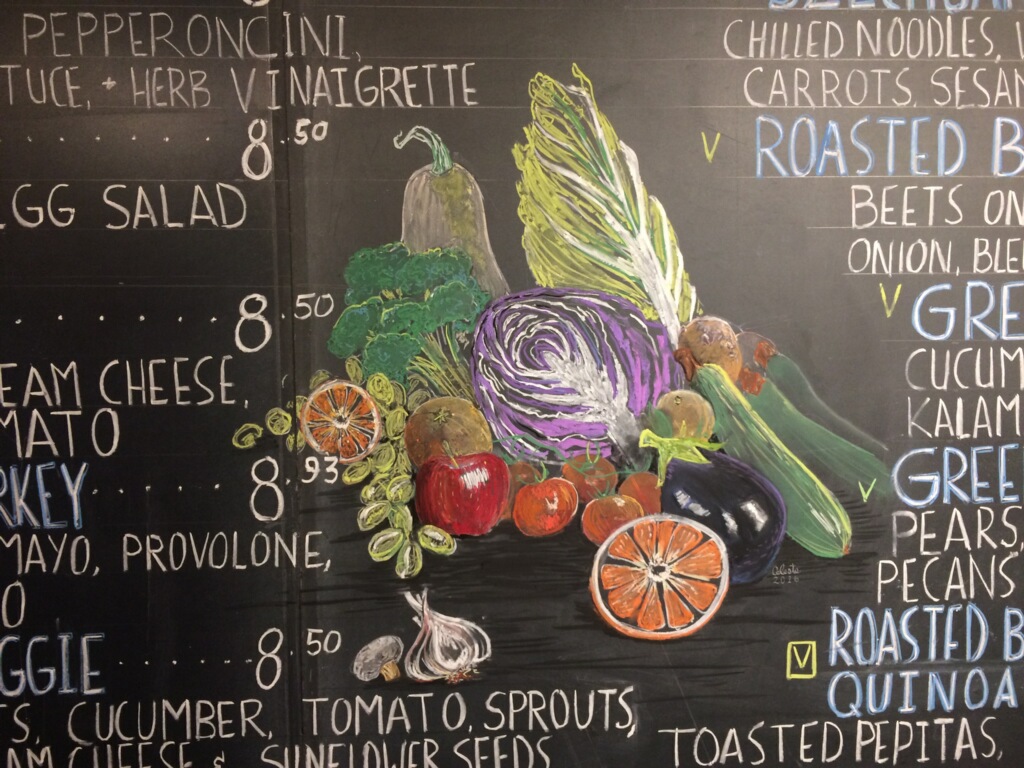 PEPPERONCINI,
TUCE, + HERB VINAIGRETTE
........ 8.50
EGG SALAD
........ 8.50
EAM CHEESE,
MATO
RKEY..... 8.93
MAYO, PROVOLONE,
O
GGIE...... 8.50
TS, CUCUMBER, TOMATO, SPROUTS,
AM CHEESE & SUNFLOWER SEEDS
CHILLED NOODLES,
CARROTS, SESAM
V ROASTED B
BEETS ON
ONION, BLE
V GRE
CUCUM
KALAM
V GREE
PEARS,
PECANS
V ROASTED B
QUINOA
TOASTED PEPITAS,
Celeste
2016